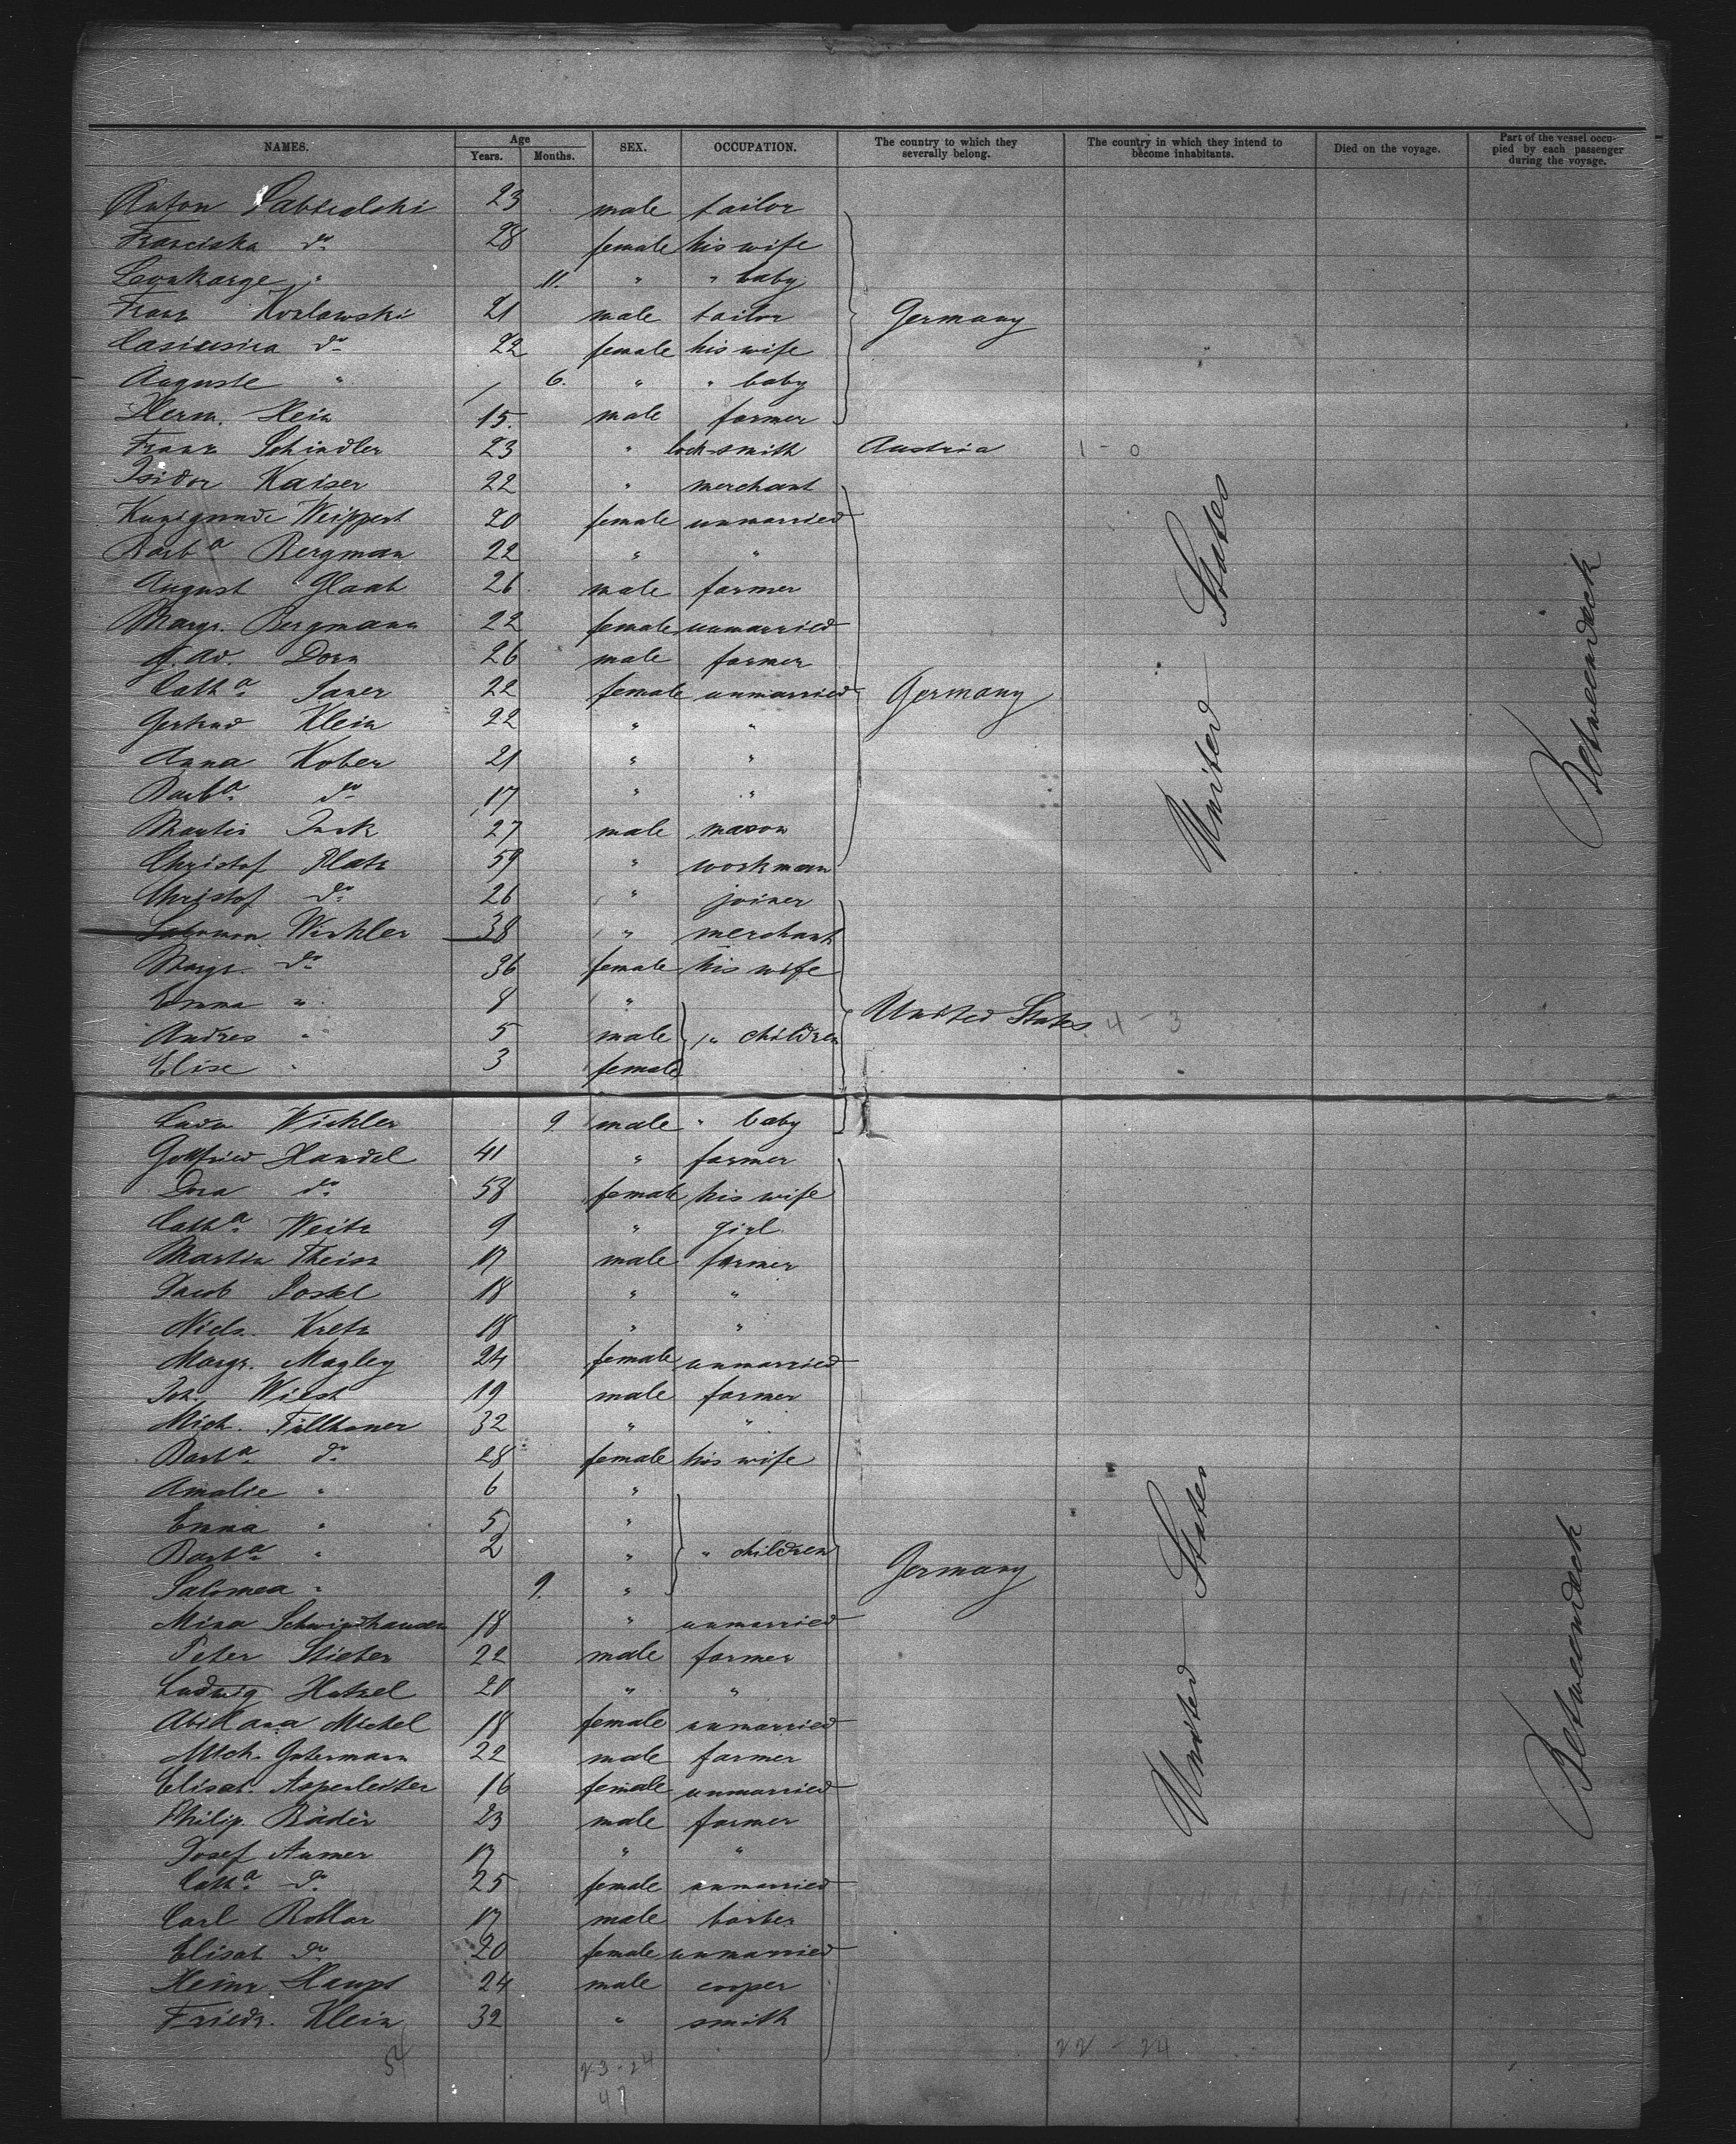 NAMES. Age Years. Months. SEX. OCCUPATION. The country to which they severally belong. The country in which they intend to become inhabitants. Died on the voyage. Part of the vessel occupied by each passenger during the voyage.
Anton 23 male tailor
Franciska do 28 female his wife
" 11. " " baby
Franz Kozlowski 21 male tailor Germany
do 22 female his wife
Auguste " / 6. " " baby
Herm. Hein 15. male farmer
Franz Schindler 23 " lock-smith Austria 1 - 0
Isidor Kaiser 22 " merchant
Kunigunde Weippert 20 female unmarried
Barba Bergman 22 " "
August Glaab 26 male farmer
Margr. Bergmann 22 female unmarried
Dorn 26 male farmer
Catha 22 female unmarried Germany
Gertrud Klein 22 " "
Anna Kober 21 " "
Barba do 17 " "
Martin 27 male mason
Christof Platz 59 " workman
Christof do 26 " joiner
Salomon Wichler 38 " merchant
Margr. do 36 female his wife
Emma " 8 "
Andres " 5 male " children United States 4 - 3
Elise " 3 female
United States
Betweendeck
Wichler 9 male " baby
Gottfried Handel 41 " farmer
do 53 female his wife
Catha Weitz 9 " girl
Martin Theisz 17 male farmer
Jacob 18 " "
Kretz 18 " "
Margr. Magley 24 female unmarried
Joh. Wiest 19 male farmer
Mich. 32 " "
Barba do 28 female his wife
Amalie " 6 "
Emma " 5 "
Barba " 2 " " children Germany
Salomea " 9. "
Mina Schwindhausen 18 " unmarried
Peter Stieber 22 male farmer
Ludwig Hatzel 20 " "
Michel 18 female unmarried
Mich. Gutermann 22 male farmer
Elisab. Asperleiter 16 female unmarried
Philip Bäder 23 male farmer
Josef Aumer 17 " "
Catha do 25 female unmarried
Carl Rollar 17 male barber
Elisab do 20 female unmarried
Heinr Haupt 24 male cooper
Friedr. Klein 32 " smith
United States
Betweendeck
54 23 - 24 22 - 24
47